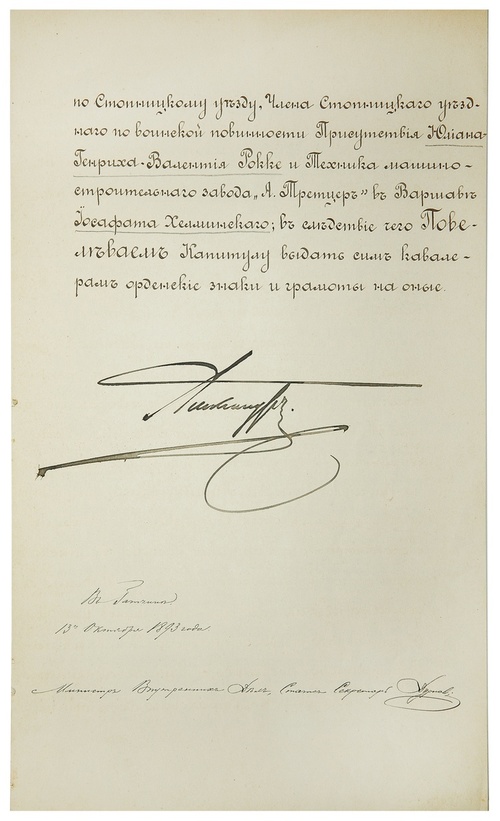 по Стопницкому уѣзду, Члена Стопницкаго уѣзд-
наго по воинской повинности Присутствія Юліана-
Генриха-Валентія Рокке и Техника машино-
строительнаго завода „А. Третцеръ” въ Варшавѣ
Іосафата Хелминскаго; въ слѣдствіе чего Пове-
лѣваемъ Капитулу выдать симъ кавале-
рамъ орденскіе знаки и грамоты на оные.
Александръ.
Въ Гатчинѣ
13го Октября 1893 года.
Министръ Внутреннихъ Дѣлъ, Статсъ Секретарь Дурново.